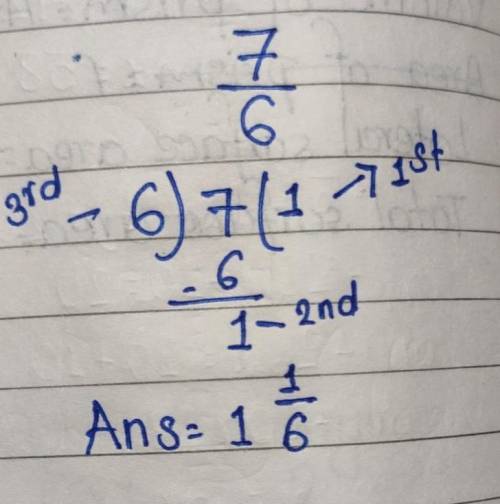 7/6
3rd - 6) 7 (1 → 1st
- 6
1 - 2nd
Ans = 1 1/6